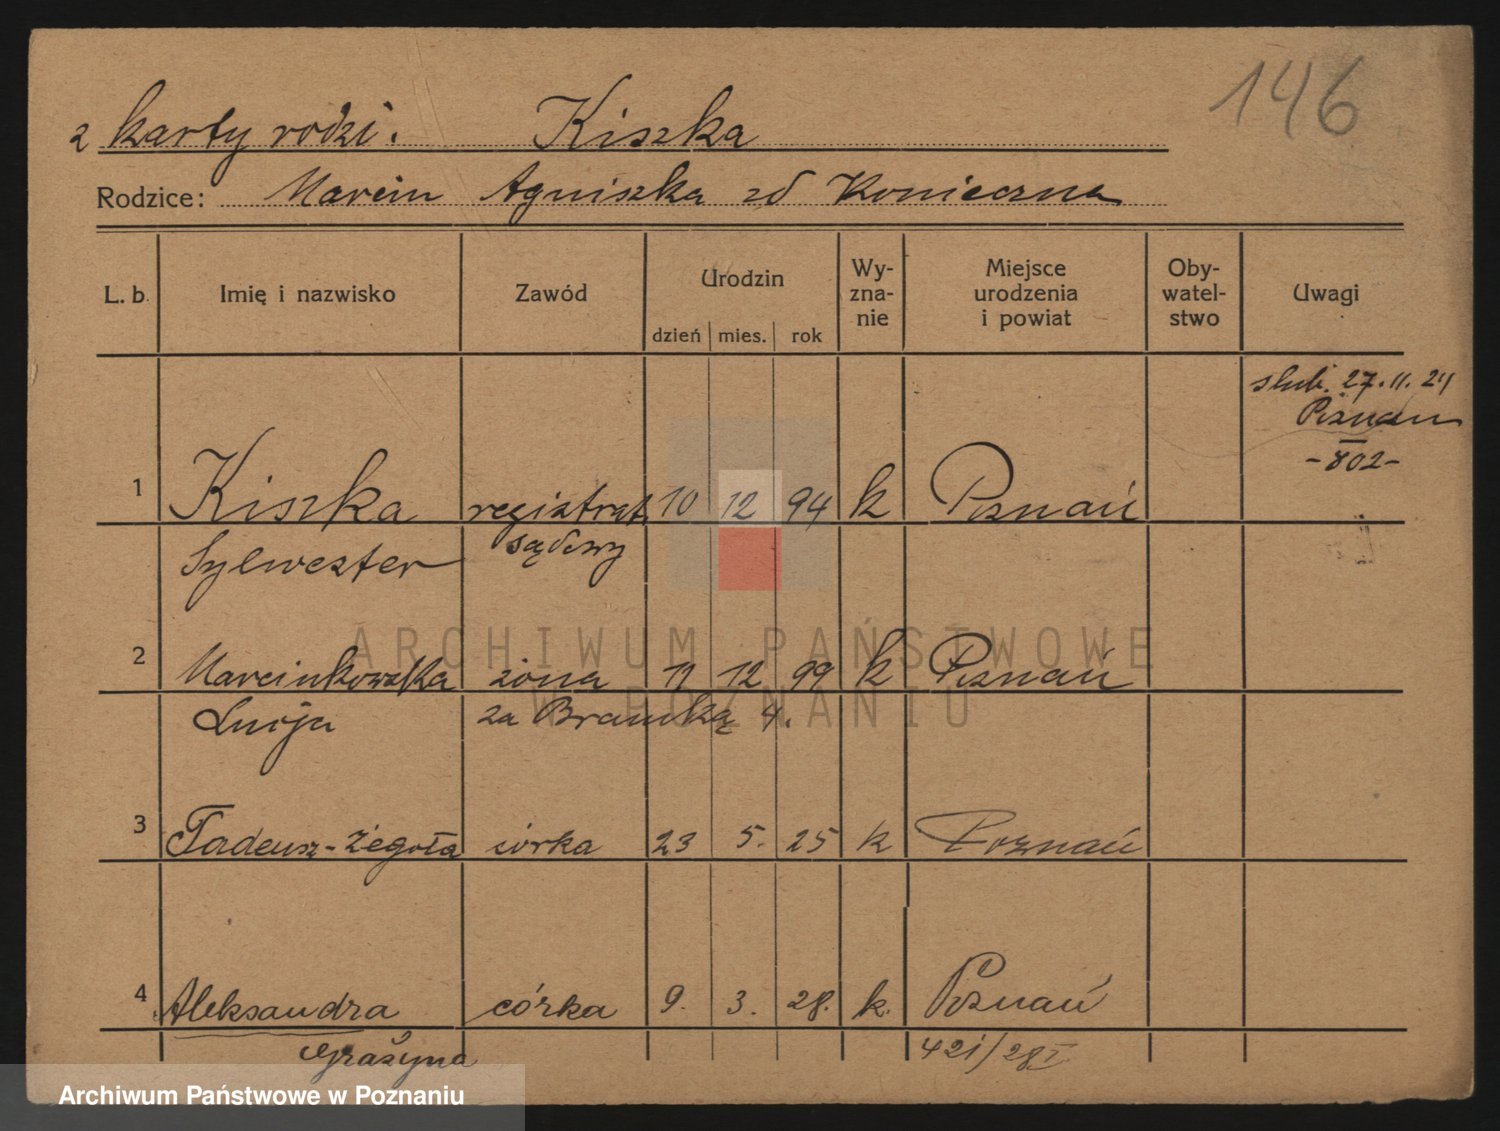 146
z karty rodzi. Kiszka
Rodzice: Marcin Agniszka zd Konieczna
L. b. Imię i nazwisko Zawód Urodzin dzień mies. rok Wy-zna-nie Miejsce urodzenia i powiat Oby-watel-stwo Uwagi
slub. 27.11.24
Poznan
-802-
1 Kiszka registrat. 10 12 94 k Poznań
Sylwester sądowy
2 Marcinkowska żona 11 12 99 k Poznań
Łucja za Bramką 4.
3 Tadeusz-Żegota córka 23 5. 25 k Poznań
4 Aleksandra córka 9. 3. 28. k. Poznań
Grażyna 421/28 I
ARCHIWUM PAŃSTWOWE
W POZNANIU
Archiwum Państwowe w Poznaniu